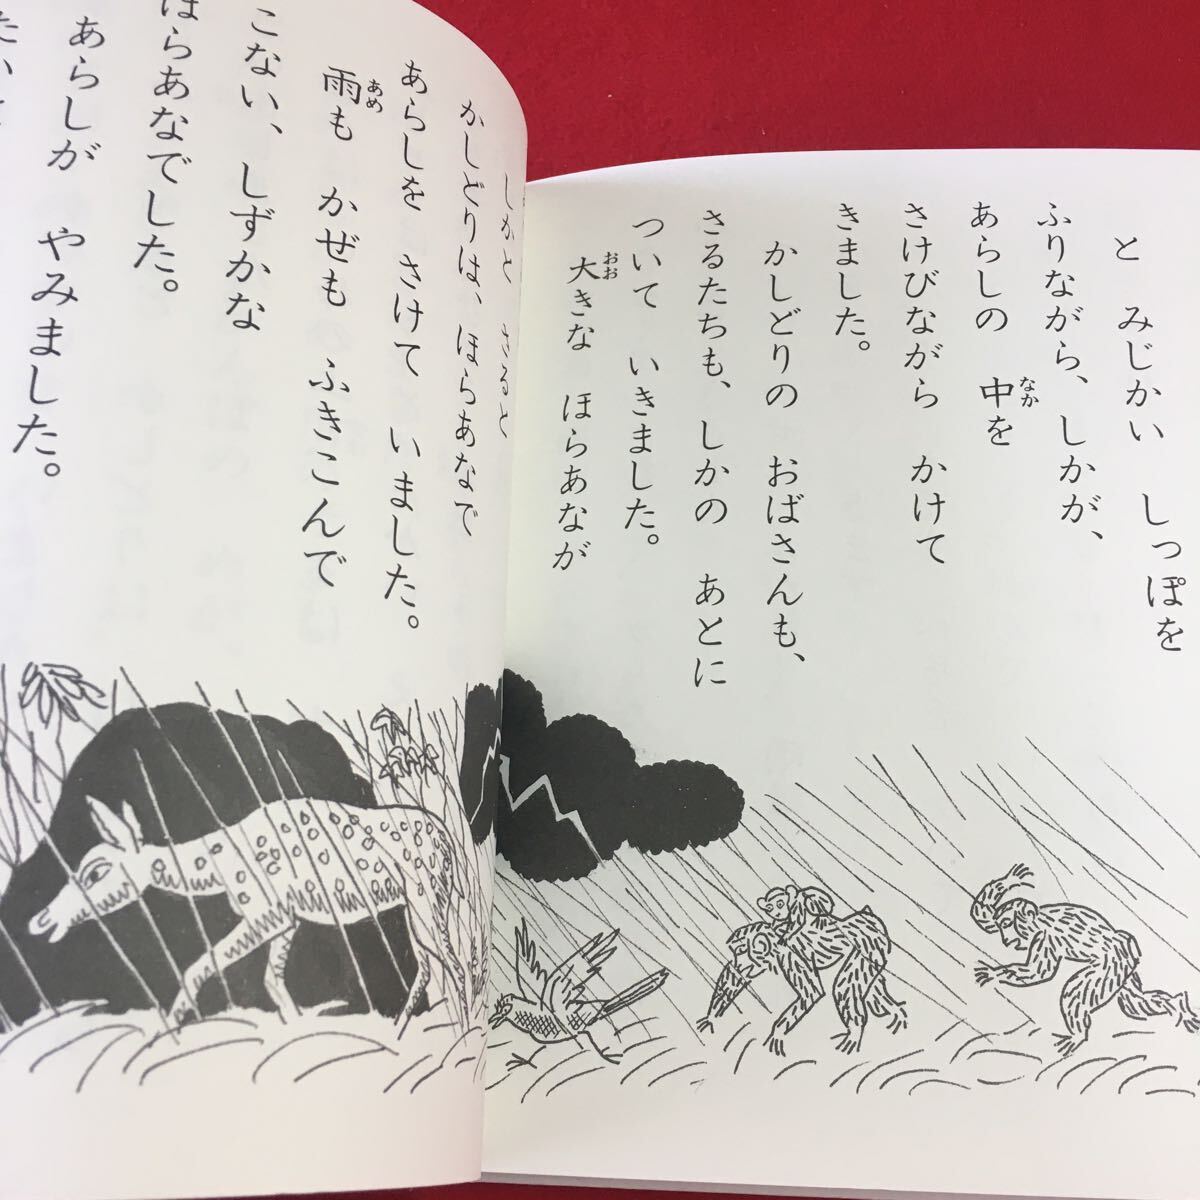 と みじかい しっぽを
ふりながら、しかが、
あらしの 中を
なか
さけびながら かけて
きました。
かしどりの おばさんも、
さるたちも、しかの あとに
ついて いきました。
大きな ほらあなが
おお
しかと さると
かしどりは、ほらあなで
あらしを さけて いました。
雨も かぜも ふきこんで
あめ
こない、しずかな
ほらあなでした。
あらしが やみました。